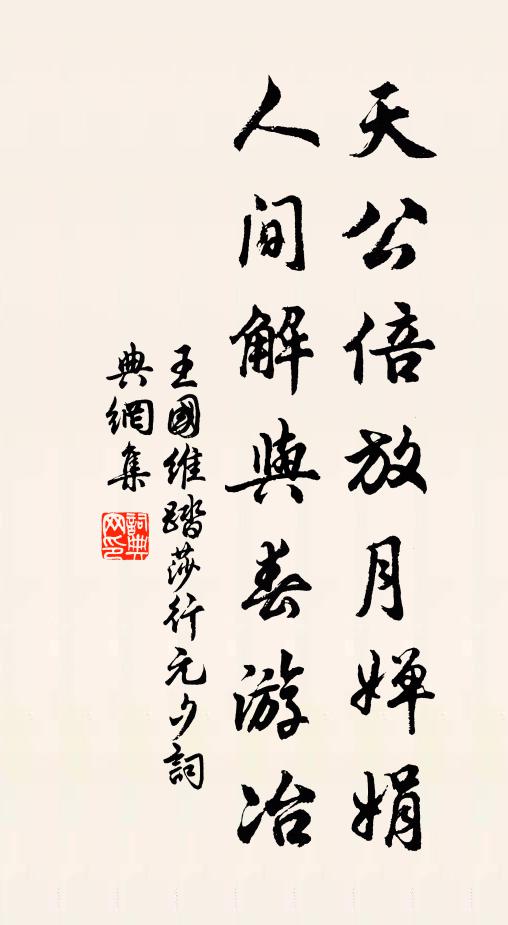 天公倍放月婵娟
人间解與春游冶
王國維踏莎行元夕詞
典網集
詞典
网印